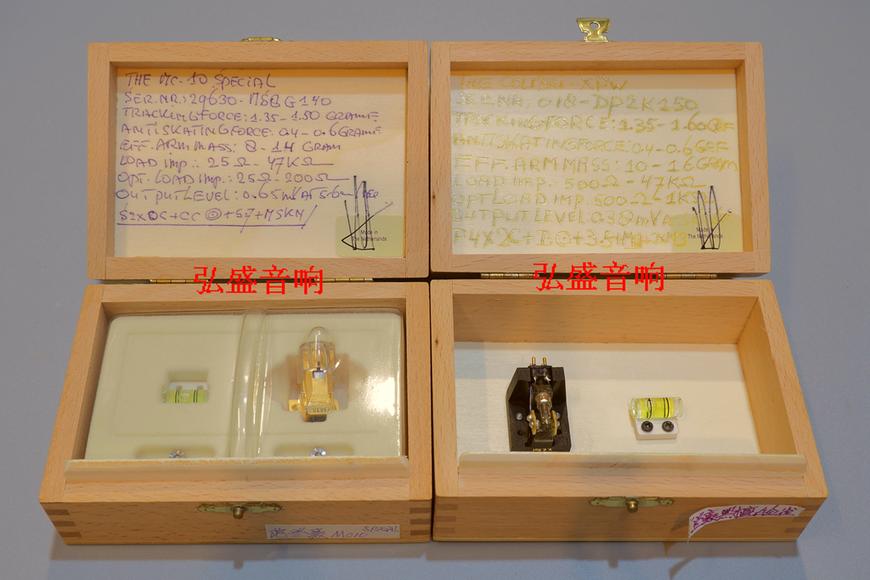 THE MC-10 SPECIAL
SER.NR.: 29630-MSQG140
TRACKINGFORCE: 1.35-1.50 GRAMF
ANTISKATINGFORCE: 0.4-0.6 GRAMF
EFF. ARM MASS: 8-14 GRAM
LOAD IMP.: 25Ω-47KΩ
OPT. LOAD IMP.: 25Ω-200Ω
OUTPUT LEVEL: 0.65mV AT 5.6
Made in
The Netherlands
THE COLIBRI-XPW
SER.NR.: 018-DP2K150
TRACKINGFORCE: 1.35-1.60GRF
ANTISKATINGFORCE: 0.4-0.6GRF
EFF. ARM MASS: 10-16 GRAM
LOAD IMP.: 500Ω-47KΩ
OPT LOAD IMP. 500Ω-1K
OUTPUT LEVEL 0.38mV
Made in
The Netherlands
弘盛音响
弘盛音响
SPECIAL